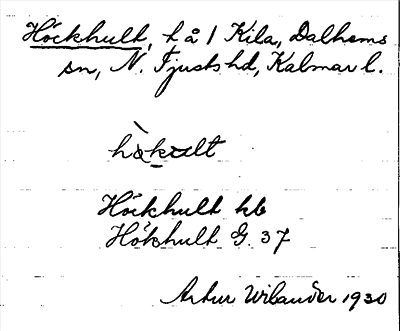 Höckhult, t å 1 Kila, Dalhems
sn, N. Tjusts hd, Kalmar l.
hὰkult
Höckhult kb
Hökhult G. 37
Artur Wilander 1930